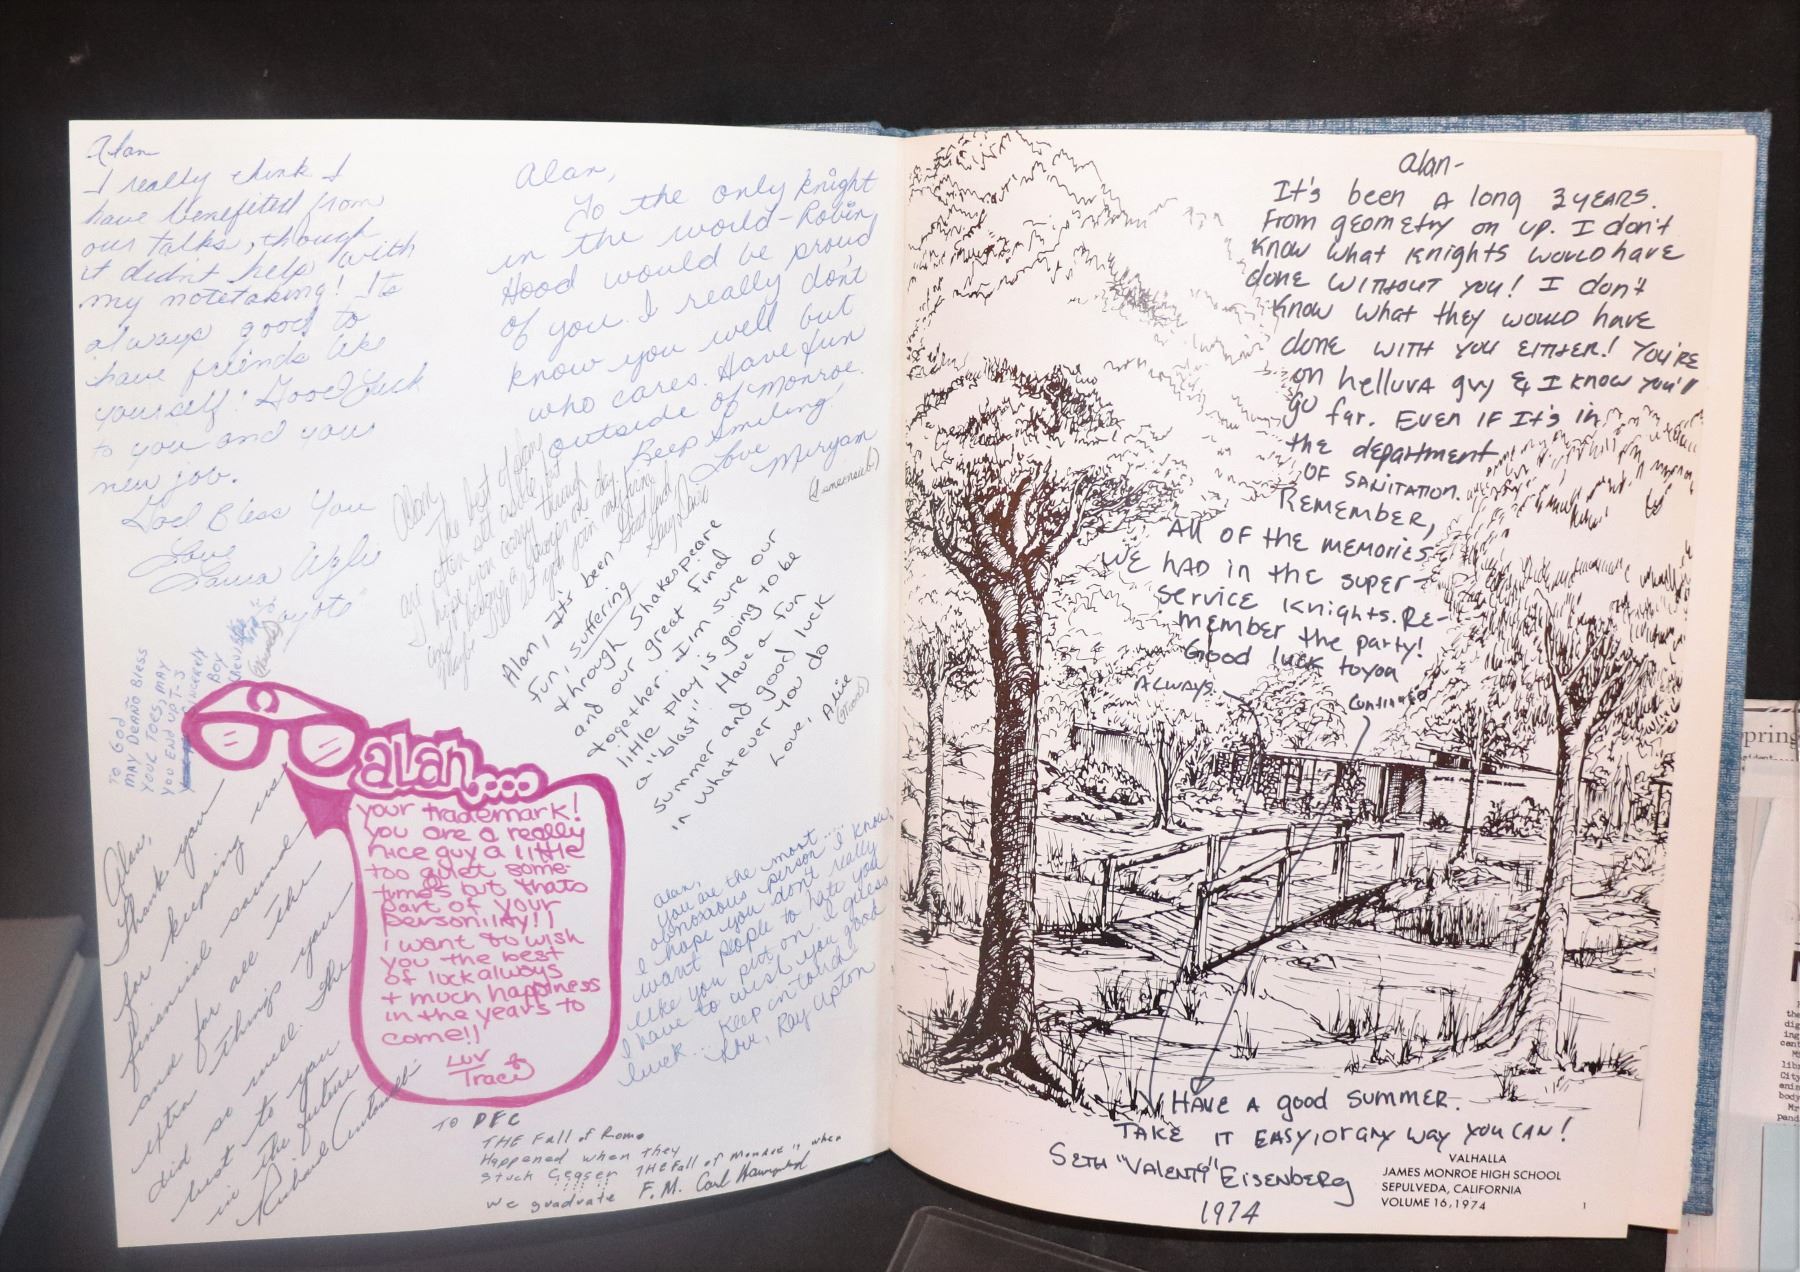 Alan
I really think I
have benefited from
our talks, though
it didn't help with
my notetaking! Its
always good to
have friends like
yourself! Good Luck
to you and your
new job.
God Bless You
Love
Laura
Alan,
To the only knight
in the world - Robin
Hood would be proud
of you. I really don't
know you well but
who cares. Have fun
outside of Monroe.
Keep Smiling!
Love
Miryam
Alan
The best of plans
are often set aside but
I hope you carry through
and become a lawyer one day
Maybe I'll let you join
Good luck
Gary Davis
Alan, It's been
fun, suffering
through Shakespeare
and our great final
together. I'm sure our
little play is going to be
a "blast". Have a fun
summer and good luck
in whatever you do
Love, Alice
TO God
MAY Bless
YOUR TOES, MAY
YOU END UP
SINCERELY
BOY
alan...
your trademark!
you are a really
nice guy a little
too quiet some-
times but thats
part of your
personility!!
i want to wish
you the best
of luck always
+ much happiness
in the years to
come!!
LUV
Traci
Alan,
Thank you
for keeping us
finanical sound
and for all the
extra things you
did so well. The
best to you
in the future
Richard
Alan,
You are the most...
obnoxious person I know,
I hope you don't really
want people to hate you
like you put on. I guess
I have to wish you good
luck... Keep in touch
Ray Upton
TO PFC
THE Fall of Rome
Happened when they
Stuck Ceaser THE Fall of Monroe is when
we graduate F.M. Carl
alan-
It's been A long 3 YEARS.
From geometry on up. I don't
know what Knights would have
done WITHOUT you! I don't
know what they would have
done WITH YOU EITHER! You're
on helluva guy & I know you'll
go far. Even IF It's in
the department
OF SANITATION.
REMEMBER,
All OF the memories
WE HAD in the super-
service Knights. Re-
member the party!
Good luck to you
ALWAYS.
Continued
HAVE A good SUMMER.
TAKE IT EASY, or any way YOU CAN!
SETH "VALENTI" EISENBERG
1974
VALHALLA
JAMES MONROE HIGH SCHOOL
SEPULVEDA, CALIFORNIA
VOLUME 16, 1974
1
pring